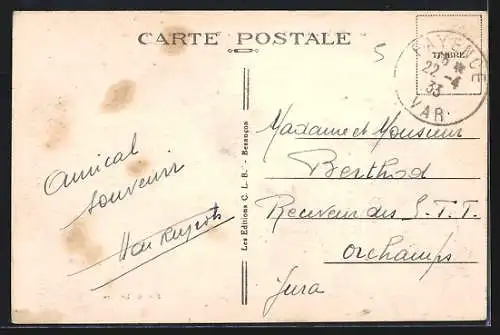 CARTE POSTALE
5
TIMBRE
FAYENCE
22-4
33
VAR
Amical
souvenir
Les Editions C. L. B. - Besançon
Madame et Monsieur
Berthod
Receveur des P.T.T.
Orchamps
Jura